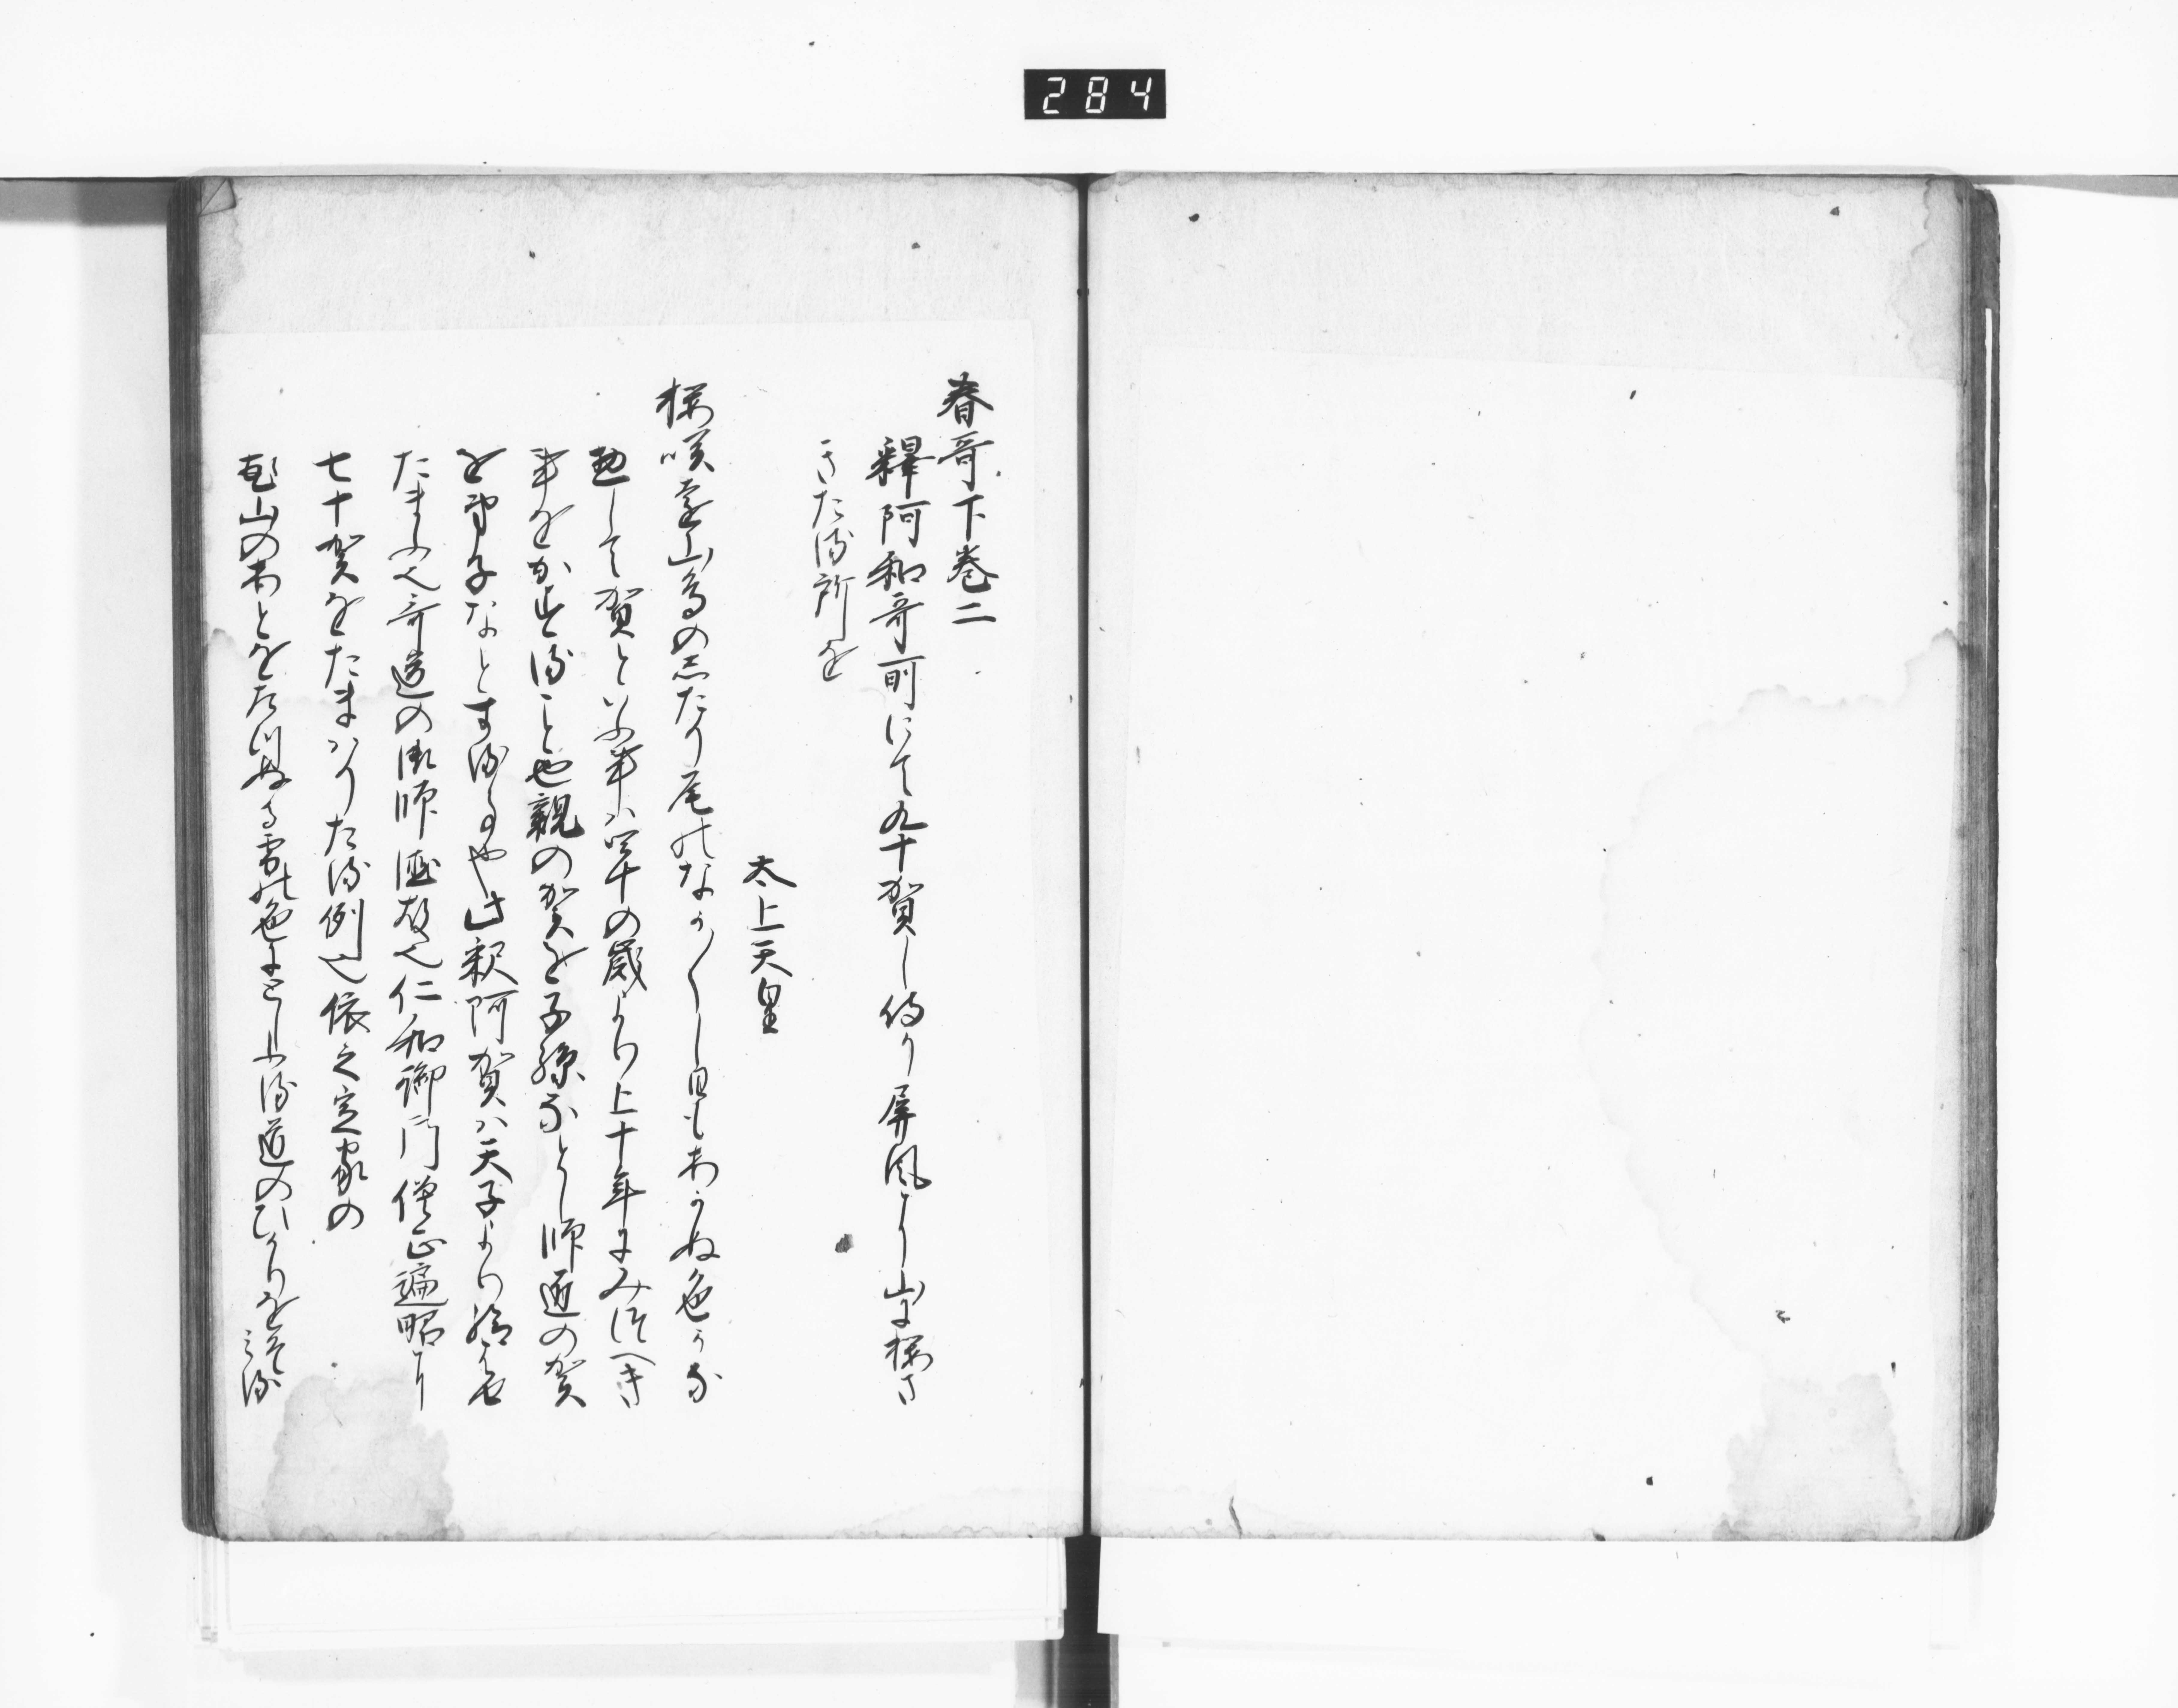 284
春哥下巻二
釋阿和哥所にて九十賀し侍り屏風に山に桜さ
きたる所を
太上天皇
桜咲遠山鳥のしたり尾のなか〱し日もあかぬ色かな
惣して賀といふ事ハ四十の歳より上十年にみつへき
事をかするこ と也親の賀を子孫なとし師匠の賀
を弟子なとするる也此釈阿賀ハ天子より給はせ
たまふ也哥道の御師徳故也仁和御門僧正遍昭に
七十賀をたまハりたる例也依之定家の
花山のあとをたつぬる雪の色に年ふる道のひかりをそみる